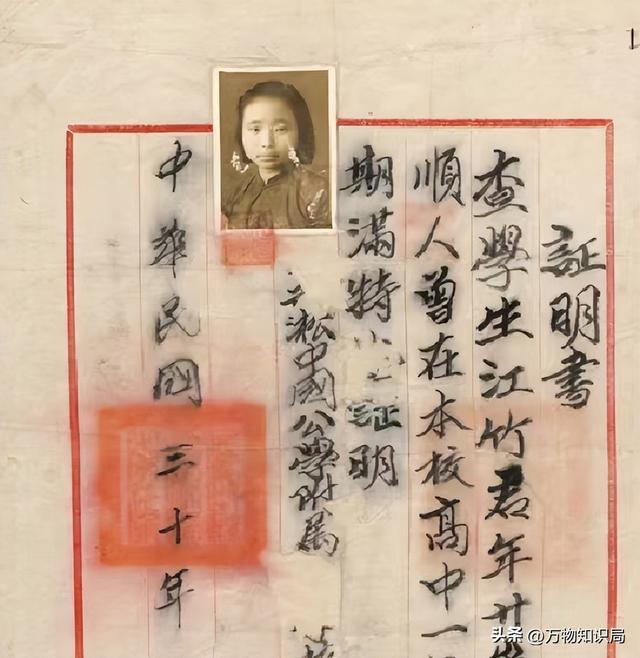 証明書
查學生江竹君年廿
順人曾在本校高中一
期滿特 証明
淞中國公學附属
中華民國三十年
头条 @万物知识局